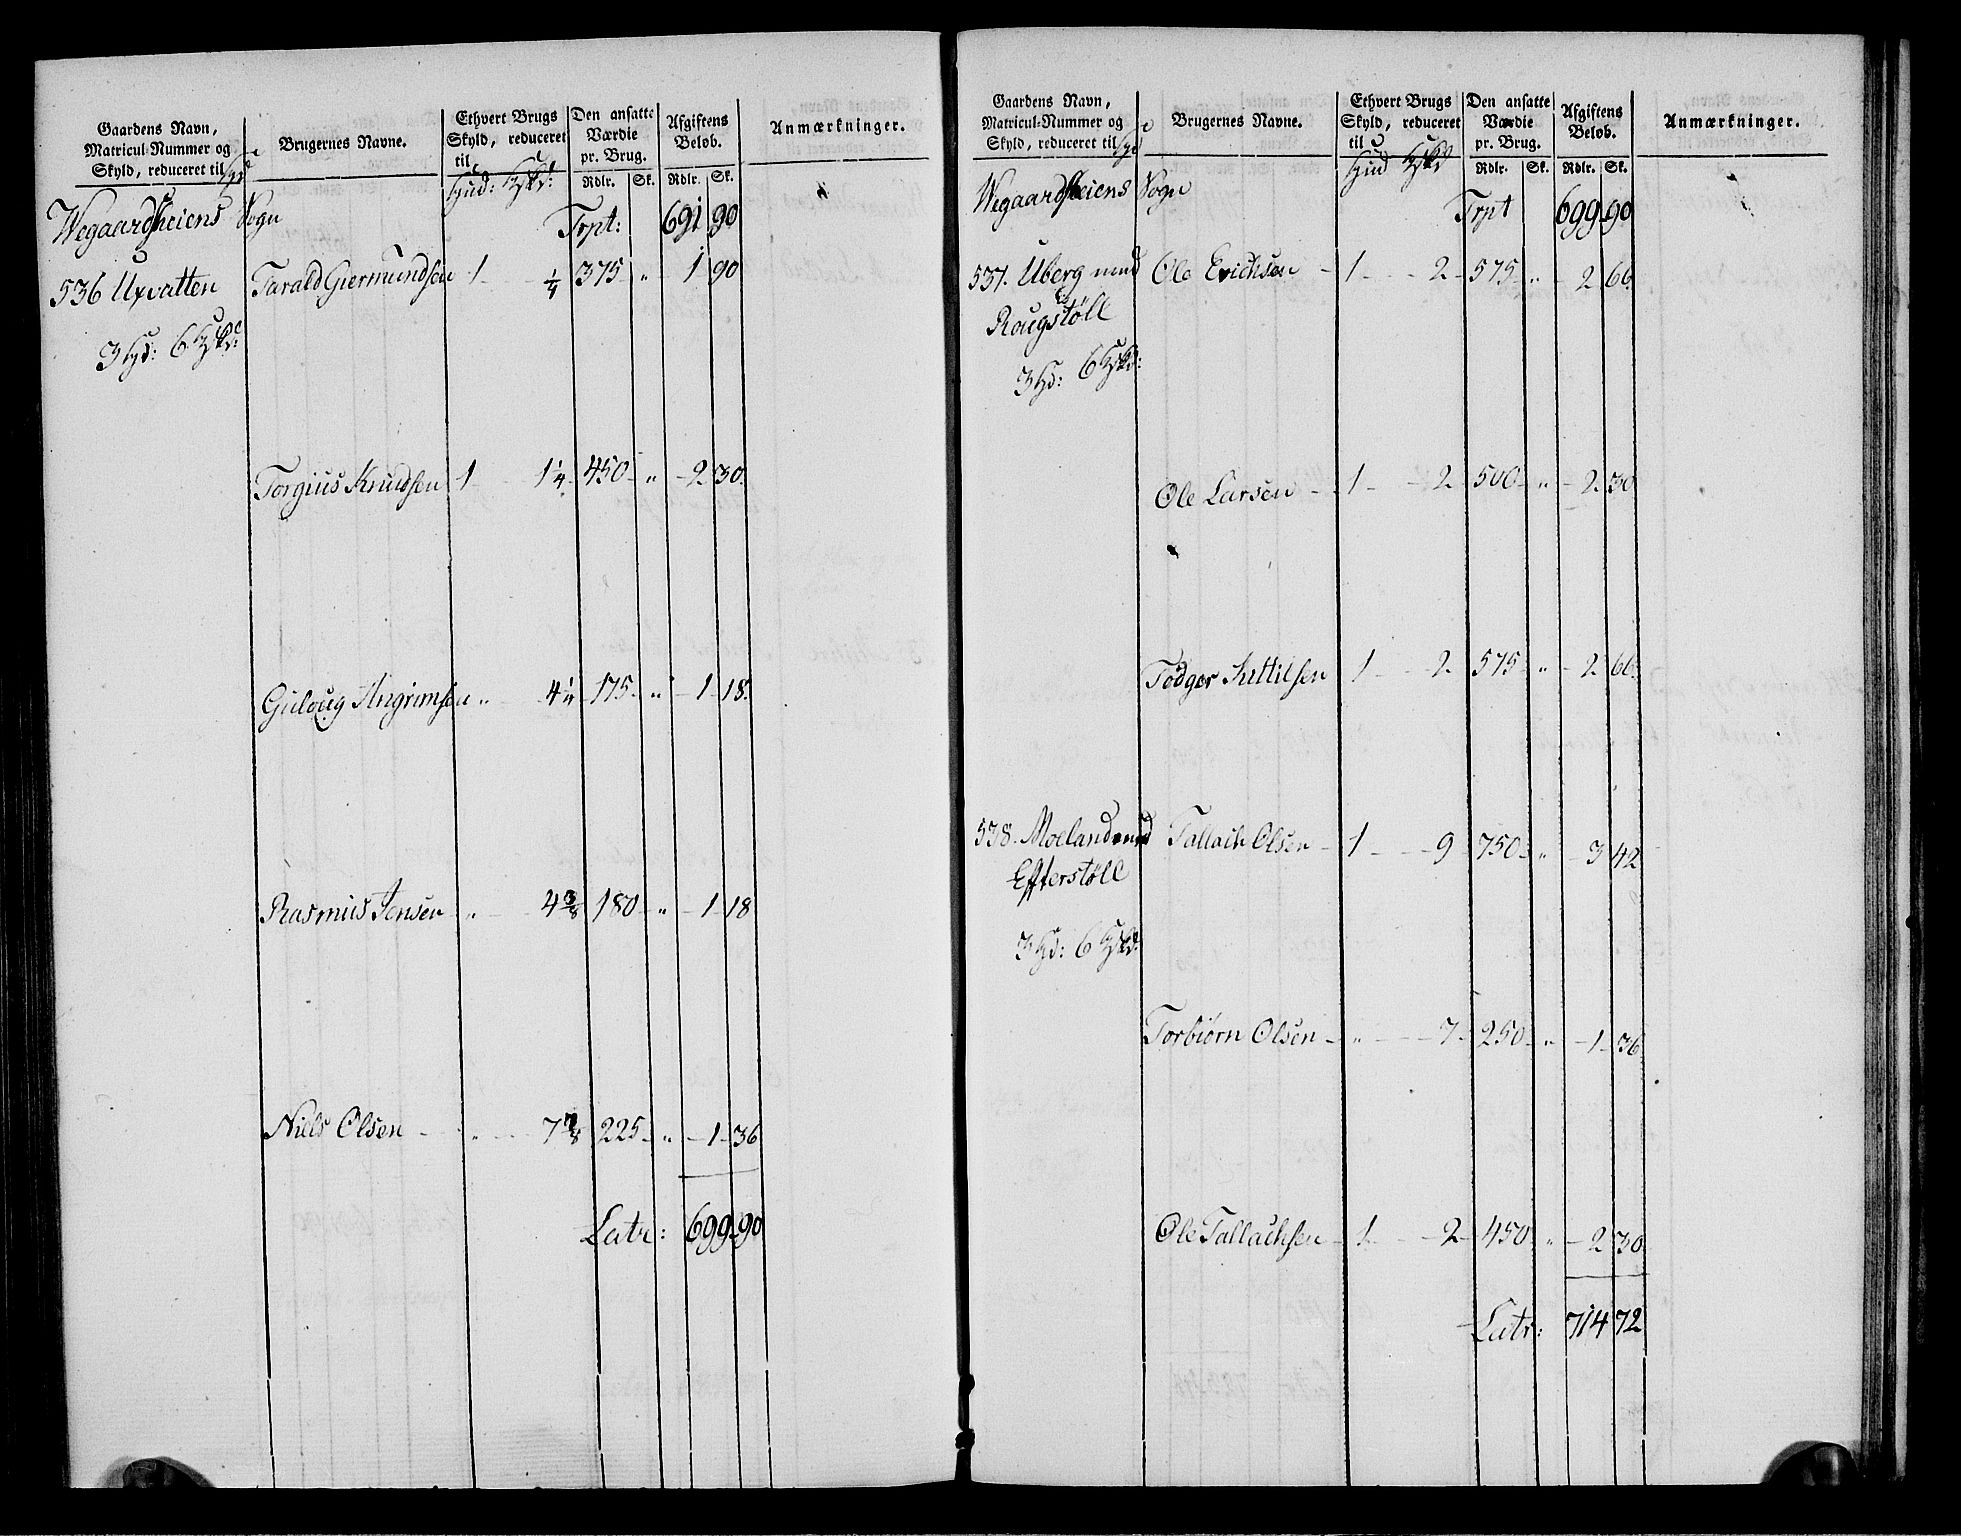 Gaardens Navn,
Matricul-Nummer og
Skyld, reduceret til Hud
Brugernes Navne.
Ethvert Brugs
Skyld, reduceret
til
Hud:
Den ansatte
Værdie
pr. Brug.
Rdlr. Sk.
Afgiftens
Beløb.
Rdlr. Sk.
Anmærkninger.
Wegaardsheiens Sogn Trpt: 691 90
536 Uxvatten Tarald Giermundsen 1 - ¼ 375 - " - 1 90
3 Hd: 6
Torgius Knudsen - 1 - - 1¼ - 450 - " - 2 30.
Guloug Angrimsen " - - 4¼ - 175 - " - 1 - 18.
Rasmus Jensen - " - - 4 3/8 180 - " - 1 - 18
Niels Olsen - - " - - 7 7/8 225 - " - 1 - 36
Latr: 699 90
Gaardens Navn,
Matricul-Nummer og
Skyld, reduceret til
Brugernes Navne.
Ethvert Brugs
Skyld, reduceret
til
Hud
Den ansatte
Værdie
pr. Brug.
Rdlr. Sk.
Afgiftens
Beløb.
Rdlr. Sk.
Anmærkninger.
Wegaardsheiens Sogn Trpt 699 90
537. Uberg med Ole Erichsen - 1 - - 2 - 575 - " - 2 66.
Rougstöll
3 Hd: 6
Ole Larsen - 1 - - 2 - 500 - " - 2 - 30
Todger Kittilsen 1 - - 2 - 575 - " - 2 66.
538. Moeland med Tallach Olsen - 1 - - 9 750 - " - 3 42
Efterstöll
3 Hd: 6
Torbiörn Olsen - " - - 7 - 250 - " - 1 - 36
Ole Tallachsen - 1 - - 2 - 450 - " - 2 30.
Latr: 714 72